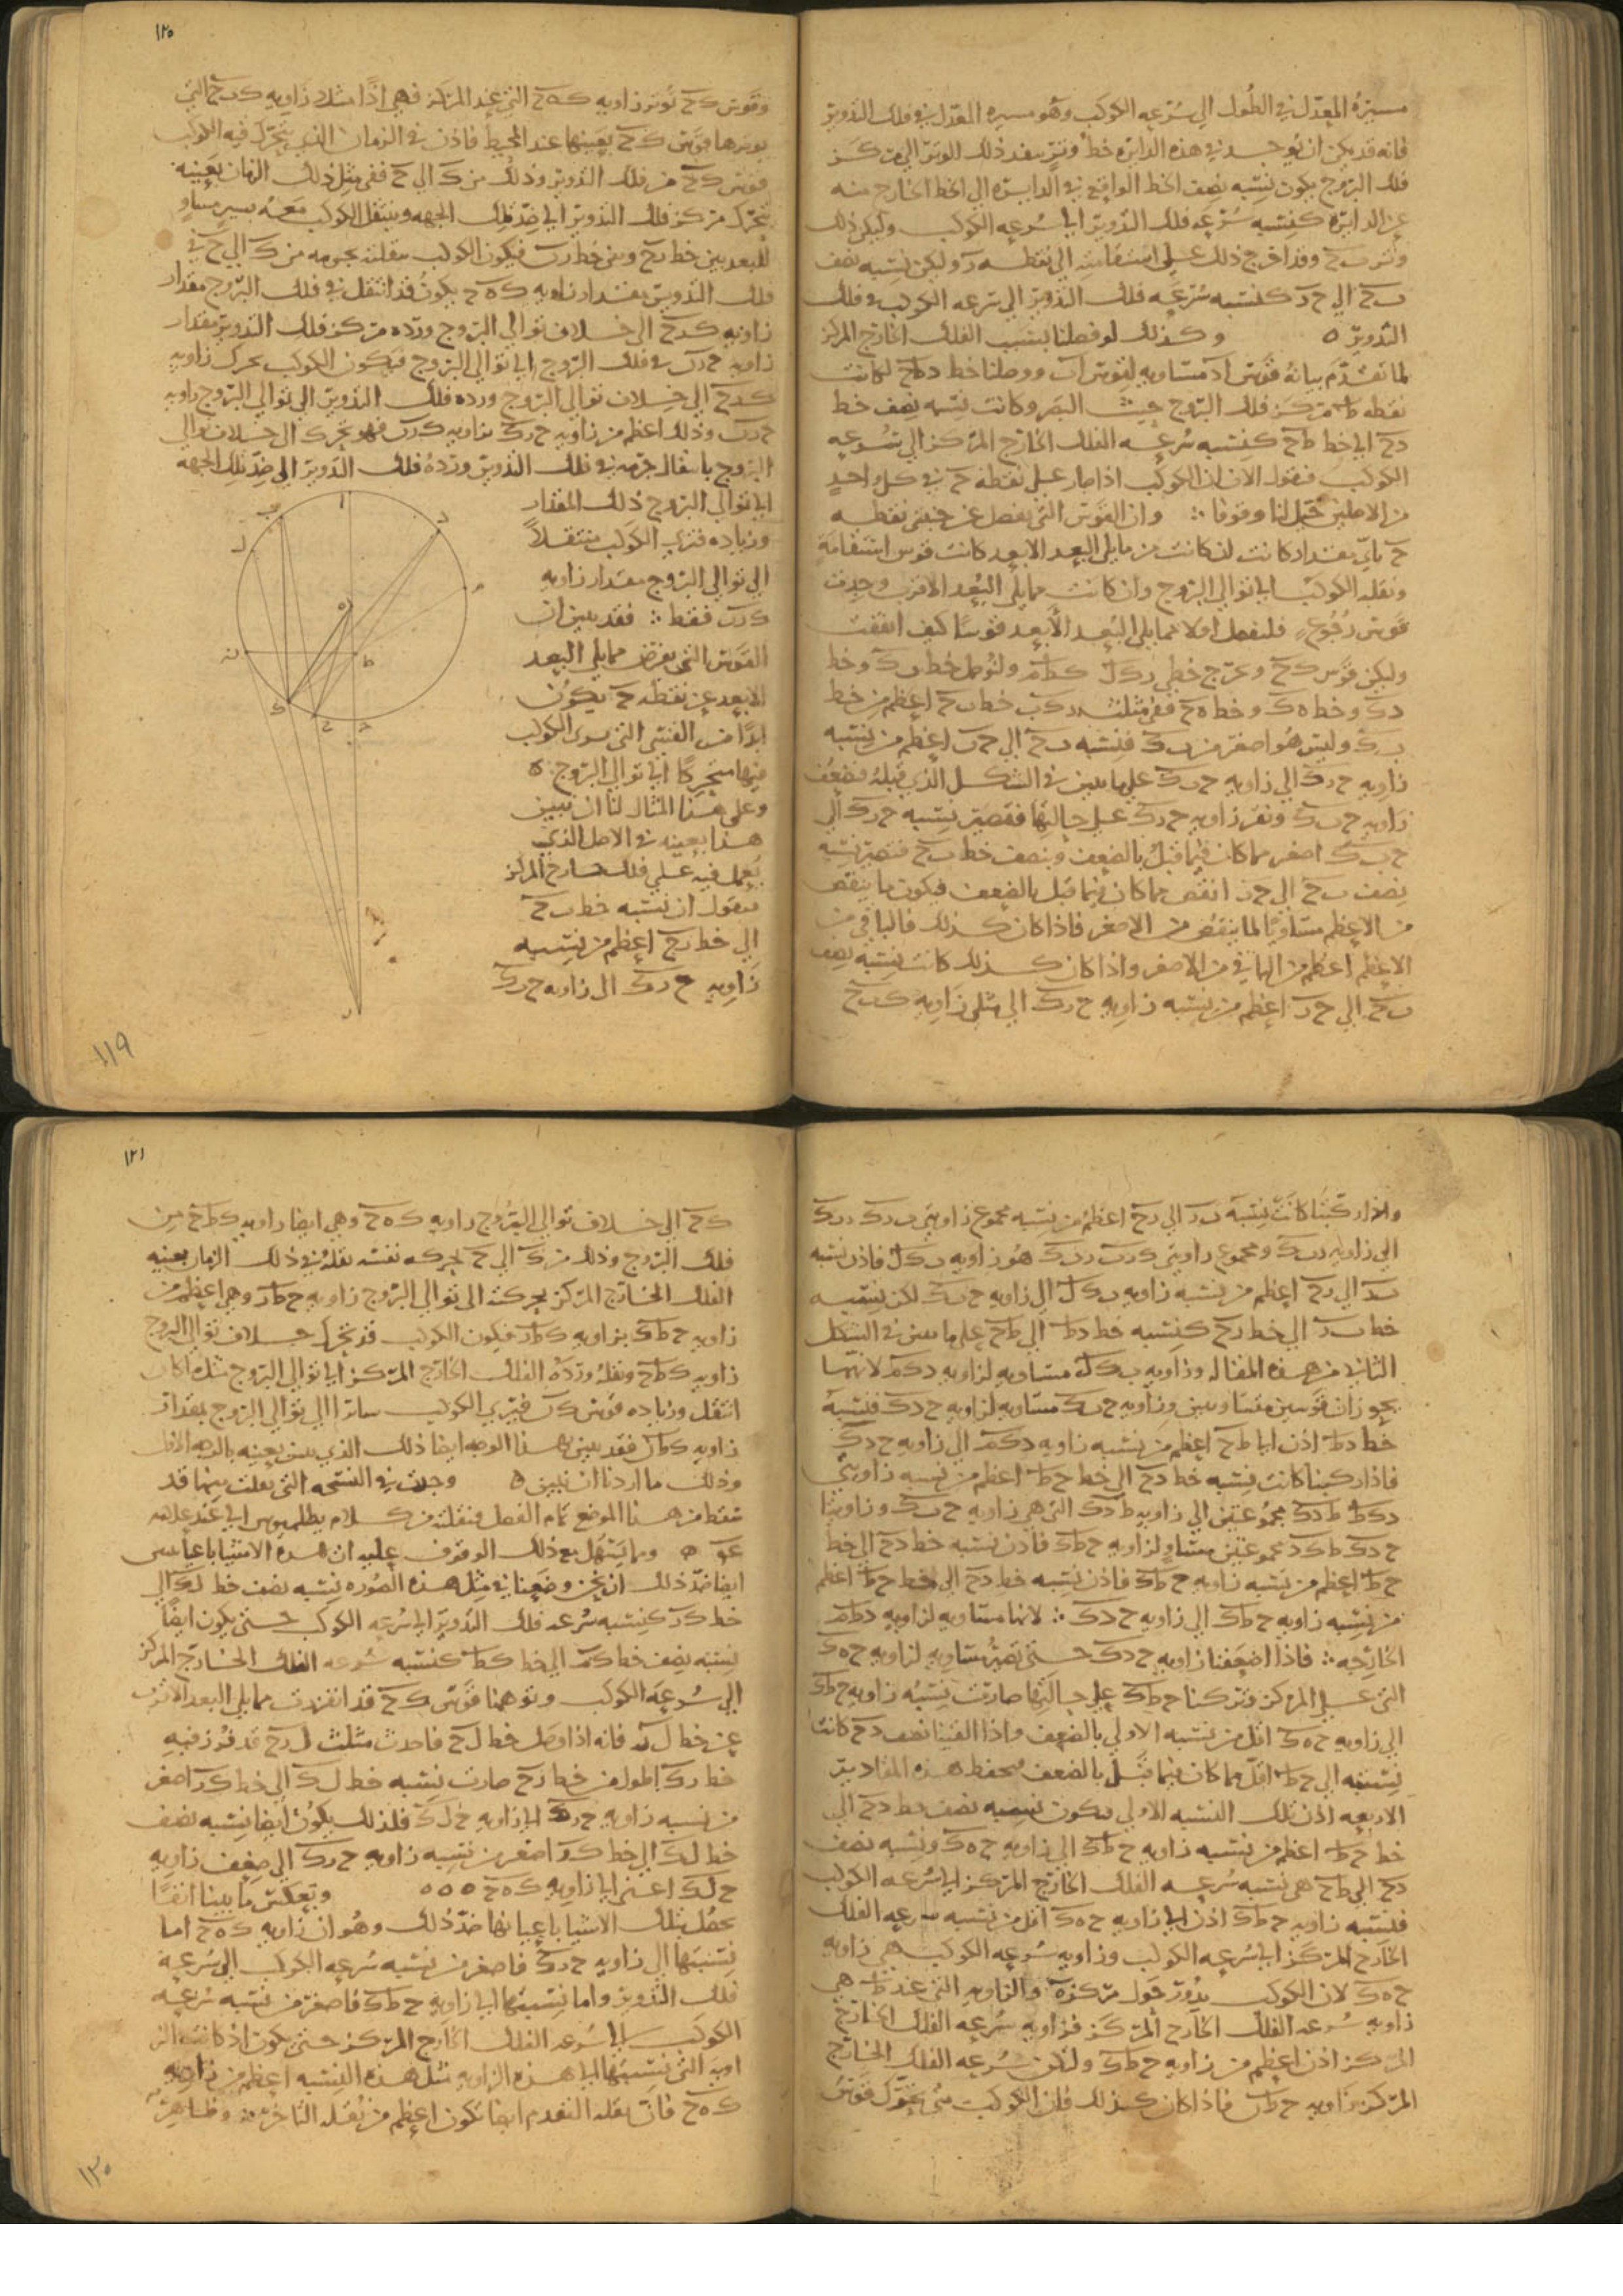 مسيرة المعدل في الطول الي سرعه الكوكب وهو مسيره المعدل في فلك التدوير
فانه قد يمكن ان يوجد في هذه الدايره خط وتر ينفد ذلك الوتر الي مركز
فلك البروج يكون نسبه نصف الخط الواقع في الدايره الي الخط الخارج منه
عن الدايره كنسبه سرعه فلك التدوير الي سرعه الكوكب وليكن ذلك
وتر ب ح وقد اخرج ذلك علي استقامته الي نقطه ر وليكن نسبه نصف
ب ح الي ح ر كنسبه سرعه فلك التدوير الي سرعه الكوكب في فلك
التدوير ه وكذلك لو فصلنا بسبب الفلك الخارج المركز
لما تقدم بيانه قوس ا د متساويه لقوس ا ب ووصلنا خط د ط ح لكانت
نقطه ط مركز فلك البروج حيث البصر وكانت نسبه نصف خط
د ح الي خط ط ح كنسبه سرعه الفلك الخارج المركز الي سرعه
الكوكب فنقول الان ان الكوكب اذا صار علي نقطه ح في كل واحد
من الاصلين خيل لنا وقوفا وان القوس التي تفصل عن جنبي نقطه
ح باي مقدار كانت ان كانت مما يلي البعد الابعد كانت قوس استقامة
ونقله الكوكب الي توالي البروج وان كانت مما يلي البعد الاقرب وجدت
قوس رجوع فلنفصل اولا مما يلي البعد الابعد قوسا كيف اتفقت
ولكن قوس ك ح و نخرج خطي ر ك ل ك ط م ولنوصل خط ب ك وخط
د ك وخط ه ك وخط ه ح ففي مثلث ر ك ب خط ب ح اعظم من خط
ب ك وليس هو اصغر من ب ك فنسبه ب ح الي ح ر اعظم من نسبه
زاويه ح ر ك الي زاويه ح ب ك علي ما تبين في الشكل الذي قبله فنضعف
زاويه ح ب ك ونقر زاويه ح ر ك علي حالتها فتصير نسبه ح ر ك الي
ح ب ك اصغر مما كان فيما قبل بالضعف وبنصف خط ب ح فتصير نسبه
نصف ب ح الي ح ر انقص مما كان فيما قبل بالضعف فيكون ما ينقص
من الاعظم متساويا لما ينقص من الاصغر فاذا كان كذلك فالباقي من
الاعظم اعظم من الباقي من الاصغر واذا كان كذلك كانت نسبه نصف
ب ح الي ح ر اعظم من نسبه زاويه ح ر ك الي مثلي زاويه ك ب ح
١٢٥
وقوس ك ح توتر زاويه ك ه ح التي عند المركز فهي اذا مثلا زاويه ك ب ح التي
يوترها قوس ك ح بعينها عند المحيط فاذن في الزمان الذي يتحرك فيه الكوكب
قوس ك ح من فلك التدوير وذلك من ك الي ح ففي مثل ذلك الزمان بعينه
يتحرك مركز فلك التدوير الي ضد تلك الجهه وينتقل الكوكب معه بسير مساو
للبعد بين خط ر ح وبين خط ر ب فيكون الكوكب بنقلته بجرمه من ك الي ح في
فلك التدوير بمقدار زاويه ك ه ح يكون قد انتقل في فلك البروج مقدار
زاويه ك ر ح الي خلاف توالي البروج ورده مركز فلك التدوير مقدار
زاويه ح ر ب في فلك البروج الي توالي البروج فيكون الكوكب تحرك زاويه
ك ر ح الي خلاف توالي البروج ورده فلك التدوير الي توالي البروج زاويه
ح ر ب وذلك اعظم من زاويه ح ر ك بزاويه ك ر ب فهو يتحرك الي خلاف توالي
البروج بانتقال جرمه في فلك التدوير ورده فلك التدوير الي ضد تلك الجهه
الي توالي البروج ذلك المقدار
وزياده فنري الكوكب منتقلا
الي توالي البروج مقدار زاويه
ك ر ب فقط فقد تبين ان
القوس التي تفرض مما يلي البعد
الابعد عن نقطه ح يكون
ابدا من القسي التي يري الكوكب
فيها متحركا الي توالي البروج ه
وعلي هذا المثال لنا ان نبين
هذا بعينه في الاصل الذي
يعمل فيه علي فلك خارج المركز
فنقول ان نسبه خط ب ح
الي خط ر ح اعظم من نسبه
زاويه ح ر ك الي زاويه ح ب ك
١١٩
واذا ركبنا كانت نسبه ب ر الي ر ح اعظم من نسبه مجموع زاويتي ب ر ك ر ب ك
الي زاويه ر ب ك ومجموع زاويتي ك ر ب ر ب ك هو زاويه ب ك ل فاذن نسبه
ب ر الي ر ح اعظم من نسبه زاويه ب ك ل الي زاويه ح ب ك لكن نسبه
خط ب ر الي خط ر ح كنسبه خط د ط الي ط ح علي ما تبين في الشكل
الثاني من هذه المقاله وزاويه ب ك ل مساويه لزاويه د ك م لانهما
يحوزان قوسين متساويتين وزاويه ح ب ك مساويه لزاويه ح د ك فنسبه
خط د ط اذن الي ط ح اعظم من نسبه زاويه د ك م الي زاويه ح د ك
فاذا ركبنا كانت نسبه خط د ح الي خط ح ط اعظم من نسبه زاويتي
د ك ط ط د ك مجموعتين الي زاويه ط د ك التي هي زاويه ح ب ك وزاويتا
ح د ك ط ك د مجموعتين متساو لزاويه ح ط ك فاذن نسبه خط د ح الي خط
ح ط اعظم من نسبه زاويه ح ط ك فاذن نسبه خط د ح الي خط ح ط اعظم
من نسبه زاويه ح ط ك الي زاويه ح د ك لانها مساويه لزاويه د ط م
الخارجه فاذا اضعفنا زاويه ح د ك حتي تصير مساويه لزاويه ح ه ك
التي علي المركز وتركنا ح ط ك علي حالتها صارت نسبه زاويه ح ط ك
الي زاويه ح ه ك اقل من نسبه الاولي بالضعف واذا القينا نصف د ح كانت
نسبته الي ح ط اقل مما كان فيما قبل بالضعف فيحفظ هذه المقادير
الاربعه اذن تلك النسبه الاولي فيكون نسبه نصف خط د ح الي
خط ح ط اعظم من نسبه زاويه ح ط ك الي زاويه ح ه ك ونسبه نصف
د ح الي ط ح هي نسبه سرعه الفلك الخارج المركز الي سرعه الكوكب
فنسبه زاويه ح ط ك اذن الي زاويه ح ه ك اقل من نسبه سرعه الفلك
الخارج المركز الي سرعه الكوكب وزاويه سرعه الكوكب هي زاويه
ح ه ك لان الكوكب يدور حول مركز ه والزاويه التي عند ط هي
زاويه سرعه الفلك الخارج المركز فزاويه سرعه الفلك الخارج
المركز اذن اعظم من زاويه ح ط ك ولتكن سرعه الفلك الخارج
المركز زاويه ح ط ن فاذا كان كذلك فان الكوكب متي يتحرك قوس
١٢١
ك ح الي خلاف توالي البروج زاويه ك ه ح وهي ايضا زاويه ك ط ح من
فلك البروج وذلك من ك الي ح بحركه نفسه نقله في ذلك الزمان بعينه
الفلك الخارج المركز بحركته الي توالي البروج زاويه ح ط ن وهي اعظم من
زاويه ح ط ك بزاويه ك ط ن فيكون الكوكب قد تحرك خلاف توالي البروج
زاويه ك ط ح ونقله ورده الفلك الخارج المركز الي توالي البروج مثل ما كان
انتقل وزياده قوس ك ن فيري الكوكب سائرا الي توالي البروج بمقدار
زاويه ك ط ن فقد تبين بهذا الوجه ايضا ذلك الذي تبين بعينه بالوجه الاول
وذلك ما اردنا ان نبين ه وجدت في النسخه التي نقلت منها قد
سقط من هذا الموضع تمام الفصل فنقلته من كلام بطلميوس الي عند علامه
ومما يسهل مع ذلك الوقوف عليه ان هذه الاشيا باعيانها
ايضا ضد ذلك ان نحن وضعنا في مثل هذه الصوره نسبه نصف خط ل ك الي
خط ك ر كنسبه سرعه فلك التدوير الي سرعه الكوكب حتي يكون ايضا
نسبه نصف خط ك م الي خط ك ط كنسبه سرعه الفلك الخارج المركز
الي سرعه الكوكب وتوهمنا قوس ك ح قد انفردت مما يلي البعد الاقرب
عن خط ل ر فانه اذا وصل خط ل ح فاحدث مثلث ل ر ح قد فرز فيه
خط ر ك اطول من خط ر ح صارت نسبه خط ل ك الي خط ك ر اصغر
من نسبه زاويه ح ر ك الي زاويه ح ل ك فلذلك يكون ايضا نسبه نصف
خط ل ك الي خط ك ر اصغر من نسبه زاويه ح ر ك الي ضعف زاويه
ح ل ك اعني الي زاويه ك ه ح ه ه ه وبعكس ما بينا انفا
تحصل تلك الاشيا باعيانها ضد ذلك وهو ان زاويه ك ه ح اما
نسبتها الي زاويه ح ر ك فاصغر من نسبه سرعه الكوكب الي سرعه
فلك التدوير واما نسبتها الي زاويه ح ط ك فاصغر من نسبه سرعه
الكوكب الي سرعه الفلك الخارج المركز حتي يكون اذ كانت الز
اويه التي نسبتها الي هذه الزاويه مثل هذه النسبه اعظم من زاويه
ك ه ح فان نقله التقدم ايضا تكون اعظم من نقله التاخر وظاهر
١٢٠